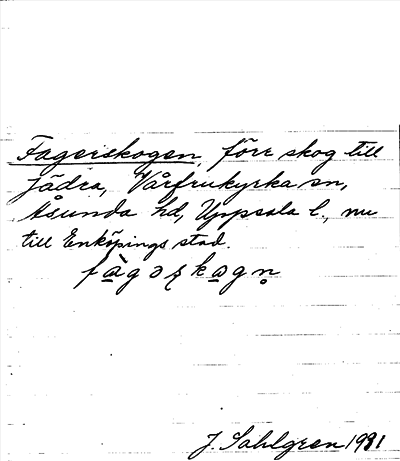 Fagerskogen, förr skog till
Jädra, Vårfrukyrka sn,
Åsunda hd, Uppsala l., nu
till Enköpings stad.
fàgəʂkogn̥
J. Sahlgren 1931